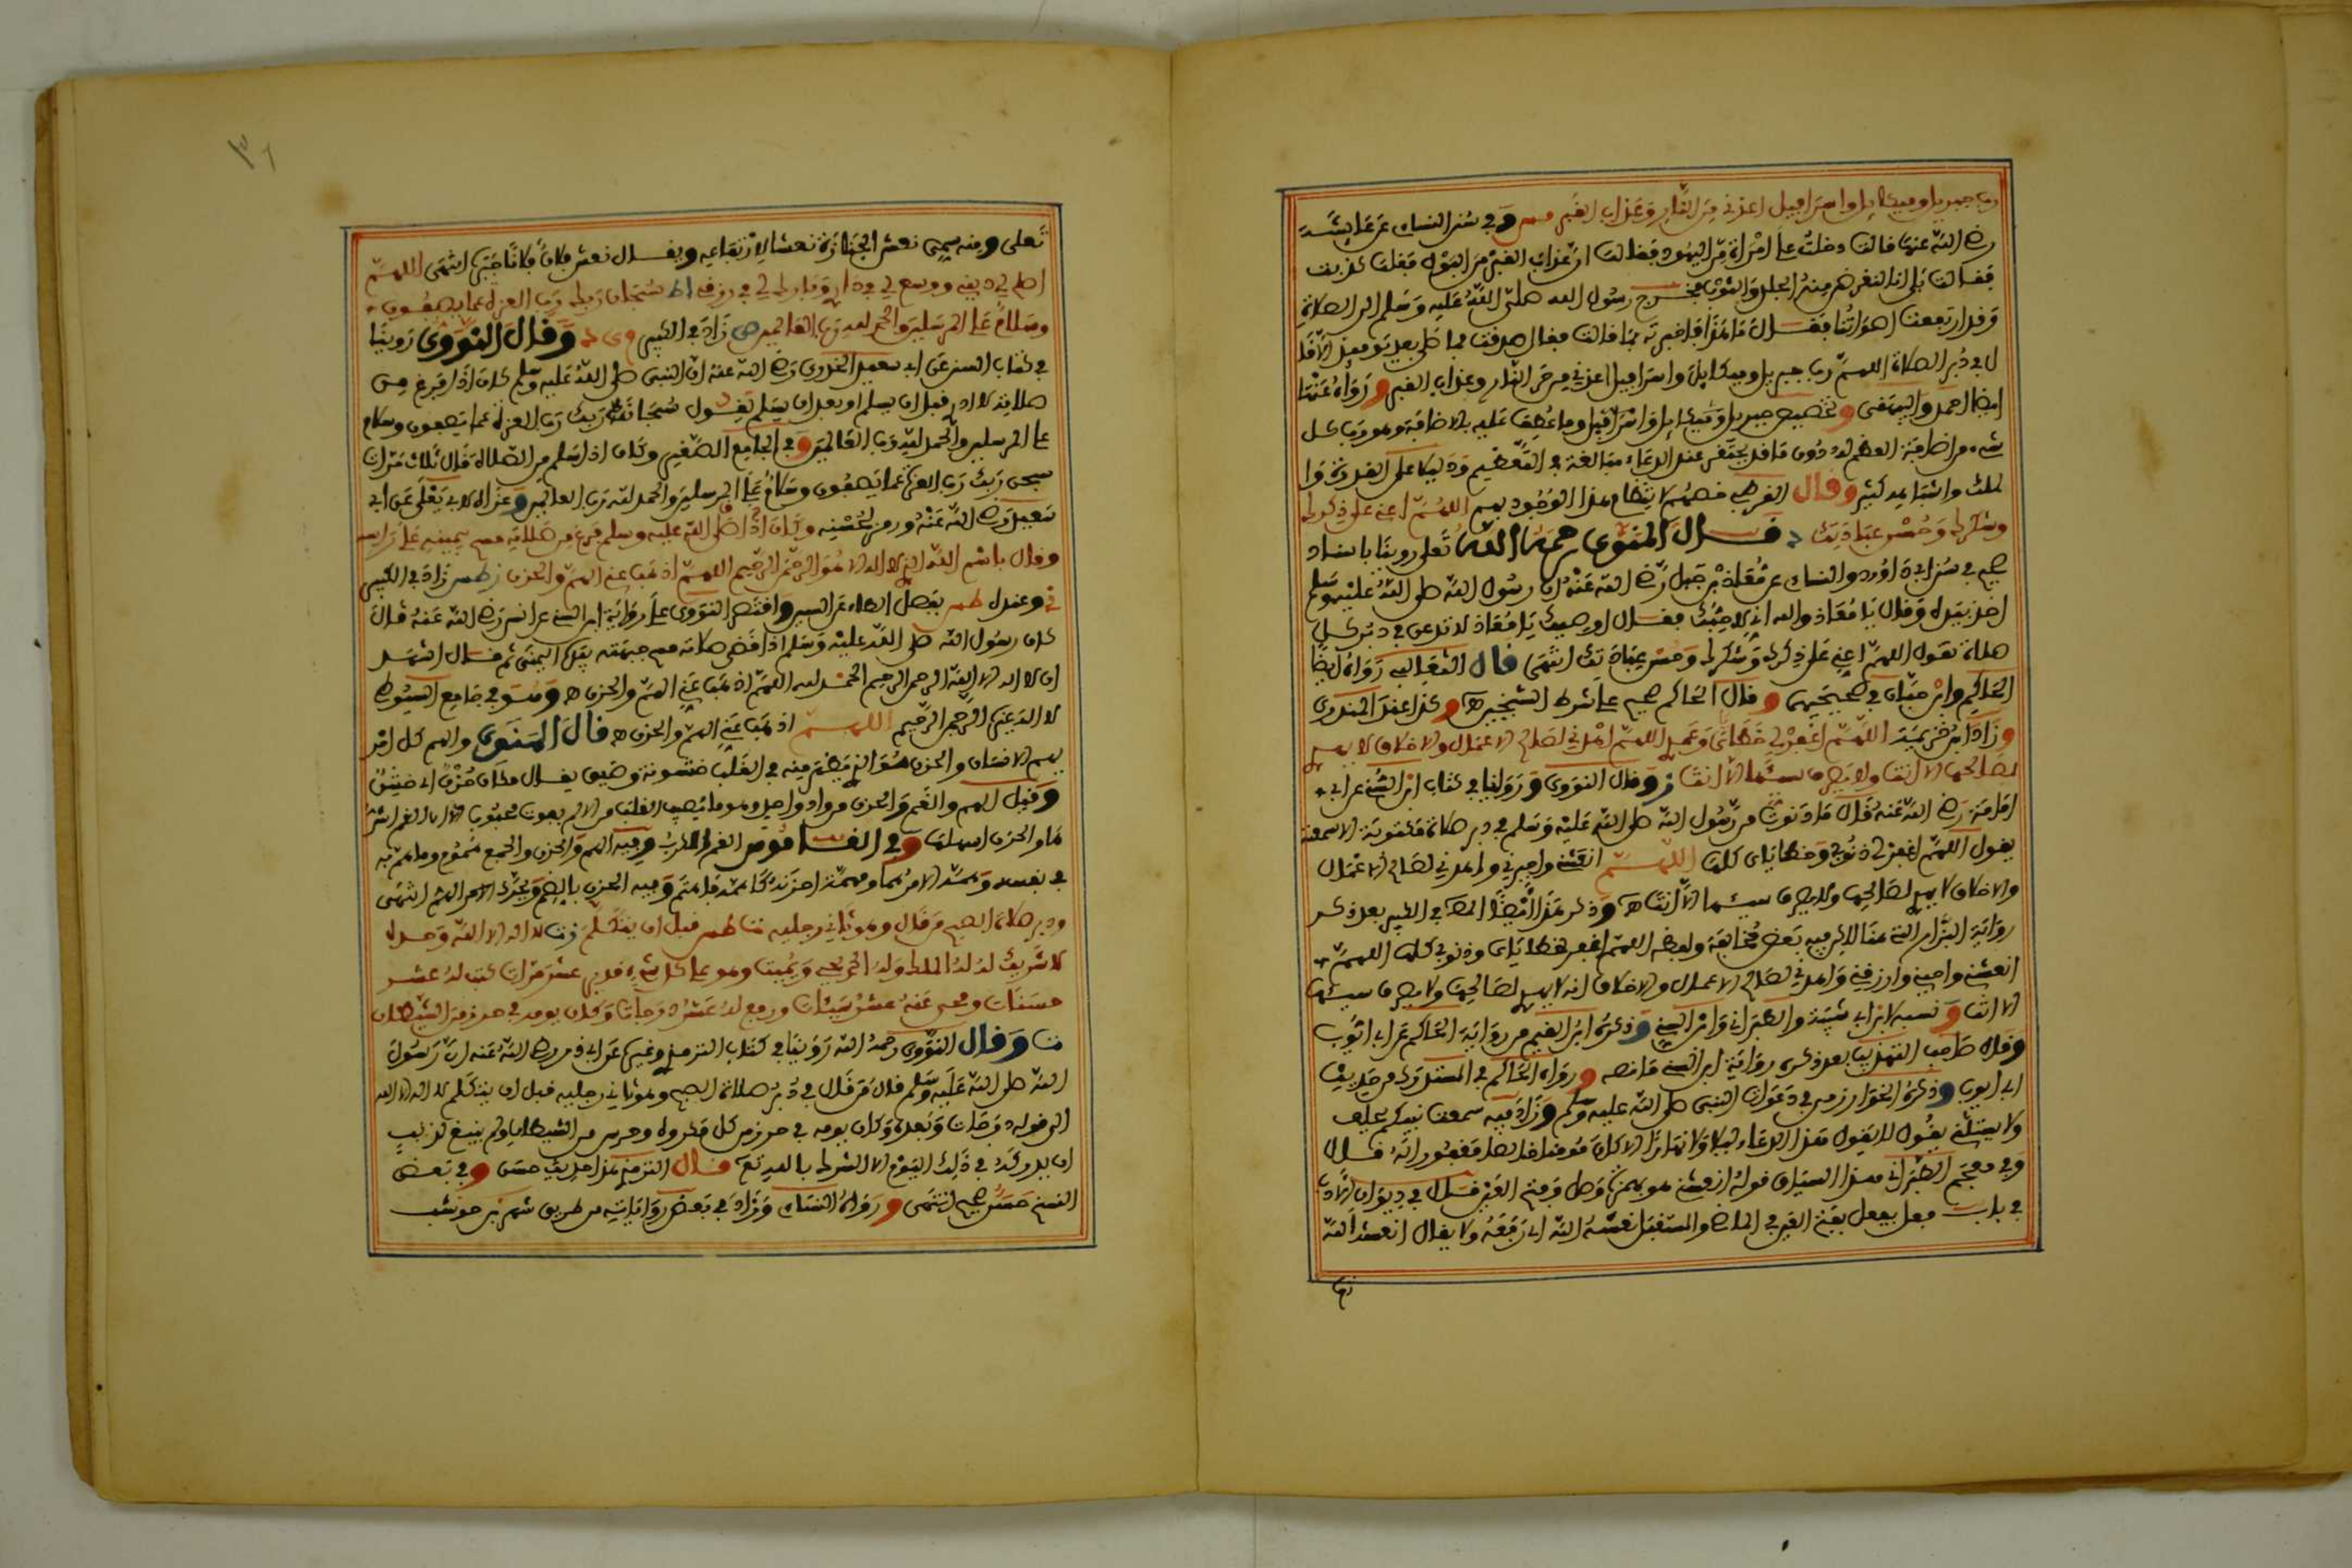 رب جبريل وميكايل واسرافيل اعذني من النار وعذاب القبر وفي سنن النساي عن عايشة
رضي الله عنها قالت دخلت علي امراة من اليهود فقالت ان عذاب القبر من البول فقلت كذبت
فقالت بلى انا لنقرض منه الجلد والثوب فخرج رسول الله صلى الله عليه وسلم الى الصلاة
وقد ارتفعت اصواتنا فقال ما هذا فاخبرته بما قالت فقال صدقت فما صلى بعد يوميذ الا قا
ل في دبر الصلاة اللهم رب جبريل وميكايل واسرافيل اعذني من حر النار وعذاب القبر ورواه عنها
ايضا احمد والبيهقي وتخصيص جبريل وميكايل واسرافيل وما عطف عليه بالاضافة وهو رب كل
شيء من اضافة العظيم له دون ما قد يحتقر عند الدعاء مبالغة في التعظيم ودليلا على القدرة وا
لملك واشباهه كثير وقال القرطبي اللهم اعني على ذكرك
وشكرك وحسن عبادتك قال المنوي رحمه الله تعلى روينا باسناد
صحيح في سنن ابي داوود والنساي عن معاذ بن جبل رضي الله عنه ان رسول الله صلى الله عليه وسلم
اخذ بيده وقال يا معاذ والله اني لاحبك فقال اوصيك يا معاذ لا تدعن في دبر كل
صلاة تقول اللهم اعني على ذكرك وشكرك وحسن عبادتك انتهى قال الثعالبي رواه ايضا
الحاكم وابن حبان في صحيحيهما وقال الحاكم صحيح على شرط الشيخين وكذا عند المنذري
اللهم اغفر لي خطئي وعمدي اللهم اهدني لصالح الاعمال والاخلاق لا يهدي
لصالحها الا انت ولا يصرف سيئها الا انت وقال النووي وروينا في كتاب ابن السني عن ابي
امامة رضي الله عنه قال ما دنوت من رسول الله صلى الله عليه وسلم في دبر صلاة مكتوبة الا سمعته
يقول اللهم اغفر لي ذنوبي وخطاياي كلها اللهم انعشني واجبرني واهدني لصالح الاعمال
والاخلاق لا يهدي لصالحها ولا يصرف سيئها الا انت وذكر هذا ايضا في الكبير بعد ذكر
رواية البزار اللهم اغفر خطاياي وذنوبي كلها اللهم
انعشني واحيني وارزقني واهدني لصالح الاعمال والاخلاق انه لا يهدي لصالحها ولا يصرف سيئها
الا انت ونسبه لابن ابي شيبة والطبراني وابن السني وذكره ابن القيم من رواية الحاكم عن ابي ايوب
وقال صاحب التهذيب بعد ذكر رواية ابن السني ما نصه ورواه الحاكم في المستدرك من حديث
ابي ايوب وذكره الخوارزمي في دعوات النبي صلى الله عليه وسلم وزاد فيه سمعت نبيكم
وفي معجم الطبراني قوله انعشني هو بهمزة وصل وفتح العين قال في ديوان الادب
في باب فعل يفعل بفتح العين في الماضي والمستقبل نعشه الله اي رفعه ولا يقال انعشه الله
تعلى ومنه سمي نعش الجنازة نعشا لارتفاعه ويقال نعش فلان فلانا جبره انتهى اللهم
اصلح لي ديني ووسع لي في داري وبارك لي في رزقي سبحان ربك رب العزة عما يصفون
وسلام على المرسلين والحمد لله رب العالمين زاد في الكبير وقال النووي روينا
في كتاب السني عن ابي سعيد الخدري رضي الله عنه ان النبي صلى الله عليه وسلم كان اذا فرغ من
صلاته لا ادري قبل ان يسلم او بعد ان يسلم يقول سبحان ربك رب العزة عما يصفون وسلام
على المرسلين والحمد لله رب العالمين وفي الجامع الصغير وكان اذا سلم من الصلاة قال ثلاث مرات
سبحن ربك رب العزة عما يصفون وسلام على المرسلين والحمد لله رب العالمين وعزاه لابي يعلى عن ابي
سعيد رضي الله عنه ورمز لحسنه وكان اذا صلى الله عليه وسلم فرغ من صلاته مسح بيمينه على راسه
وقال باسم الله الذي لا اله الا هو الرحمن الرحيم اللهم اذهب عني الهم والحزن زاد في الكبير
واقتصر النووي على رواية ابن السني عن انس رضي الله عنه قال
كان رسول الله صلى الله عليه وسلم اذا قضى صلاته مسح جبهته بيده اليمنى ثم قال اشهد
ان لا اله الا الله الرحمن الرحيم اللهم اذهب عني الهم والحزن وهو في جامع السيوطي
لا اله غيره الرحمن الرحيم اللهم اذهب عني الهم والحزن قال المنوي والهم كل امر
يهم الانسان والحزن هو الذي يظهر منه في القلب خشونة وضيق يقال مكان حزن اي خشن
وقيل الهم والغم والحزن من واد واحد وهو ما يصيب القلب من الالم بفوت محبوب الا ان الغم اشد
ها والحزن اسهلها وفي القاموس الغم الكرب وفيه الهم والحزن والجمع هموم وما هم به
في نفسه
ودبر صلاة الصبح من قال وهو ثاني رجليه قبل ان يتكلم لا اله الا الله وحده
لا شريك له له الملك وله الحمد يحيي ويميت وهو على كل شيء قدير عشر مرات كتب له عشر
حسنات ومحي عنه عشر سيئات ورفع له عشر درجات وكان يومه في حرز من الشيطان
ت وقال النووي رحمه الله روينا في كتاب الترمذي وغيره عن ابي ذر رضي الله عنه ان رسول
الله صلى الله عليه وسلم قال من قال في دبر صلاة الصبح وهو ثاني رجليه قبل ان يتكلم لا اله الا الله
الى قوله درجات وبعده وكان يومه في حرز من كل مكروه وحرس من الشيطان ولم ينبغ لذنب
ان يدركه في ذلك اليوم الا الشرك بالله تع قال الترمذي هذا حديث حسن وفي بعض
النسخ حسن صحيح انتهى ورواه النساي وزاد في بعض رواياته من طريق شهر بن حوشب